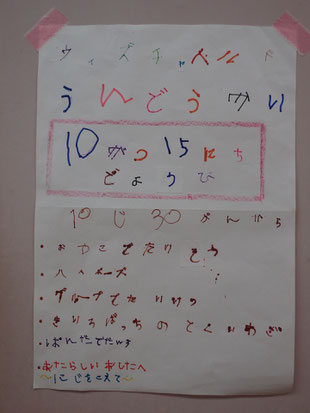 ウィズチャイルド
うんどうかい
10がつ15にち
どようび
10じ30ぷんから
・おやこでだり
・へいポーズ
・グループでたいけつ
・きいろばっちのとくいわざ
・ぱんだでだんす
・あたらしいあしたへ
～にじをこえて～